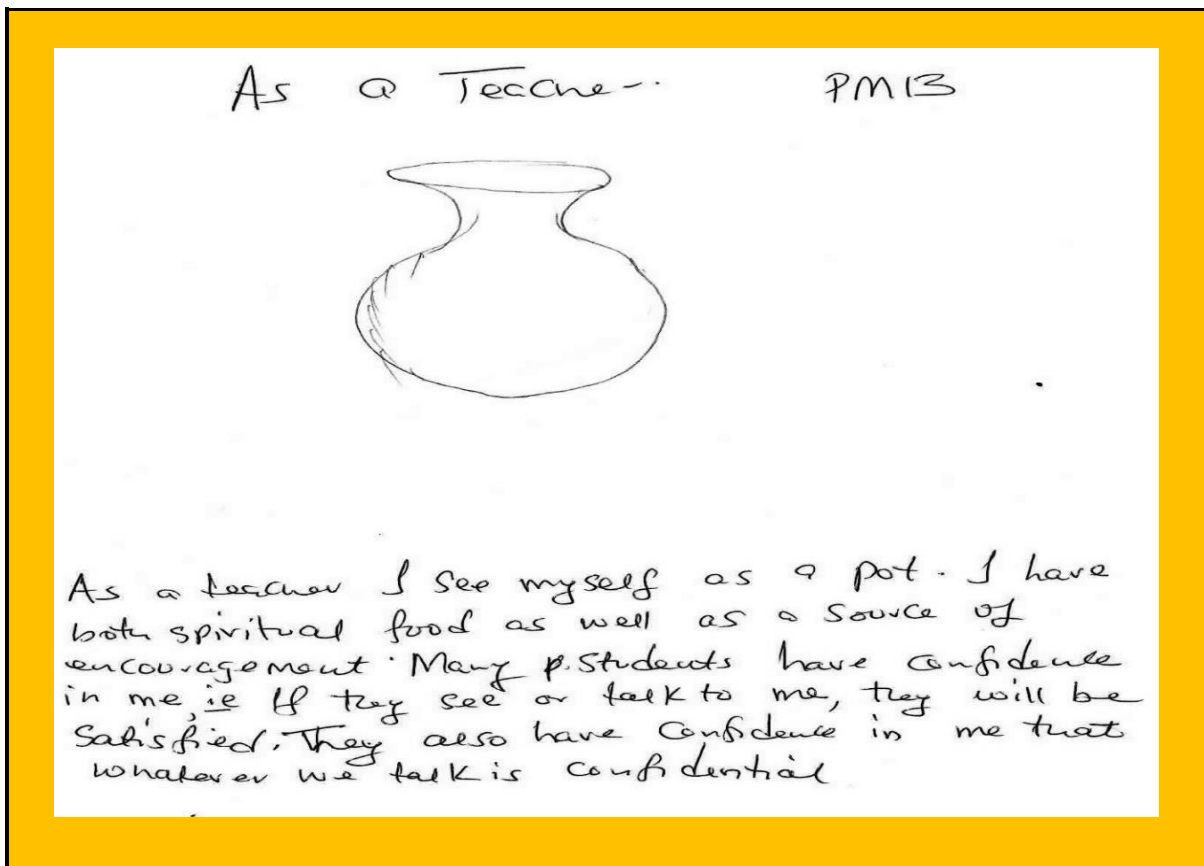 As a Teacher PM13
As a teacher I see myself as a pot. I have
both spiritual food as well as a source of
encouragement. Many p. students have confidence
in me, ie If they see or talk to me, they will be
satisfied. They also have confidence in me that
whatever we talk is confidential